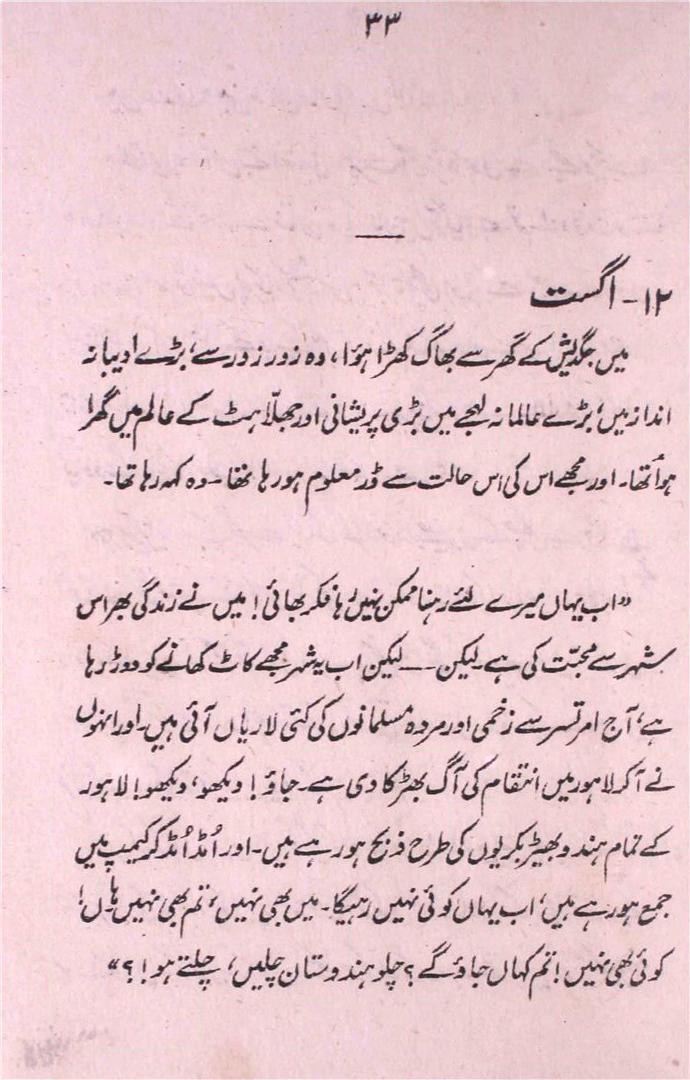 ۳۳
۱۲- اگست
میں جگدیش کے گھر سے بھاگ کھڑا ہؤا، وہ زور زور سے، بڑے ادیبانہ
انداز میں، بڑے عالمانہ لہجے میں بڑی پریشانی اور جھلّاہٹ کے عالم میں گھرا
ہوأ تھا۔ اور مجھے اس کی اس حالت سے ڈر معلوم ہو رہا تھا۔ وہ کہہ رہا تھا۔
”اب یہاں میرے لئے رہنا ممکن نہیں رہا فکر بھائی! میں نے زندگی بھر اس
شہر سے محبّت کی ہے لیکن — لیکن اب یہ شہر مجھے کاٹ کھانے کو دوڑ رہا
ہے، آج امرتسر سے زخمی اور مردہ مسلمانوں کی کئی لاریاں آئی ہیں۔ اور انہوں
نے آکر لاہور میں انتقام کی آگ بھڑکا دی ہے۔ جاؤ! دیکھو، دیکھو! لاہور
کے تمام ہندو بھیڑ بکریوں کی طرح ذبح ہو رہے ہیں۔ اور اُمڈ اُمڈ کر کیمپ میں
جمع ہو رہے ہیں، اب یہاں کوئی نہیں رہیگا۔ میں بھی نہیں، تم بھی نہیں ہاں!
کوئی بھی نہیں! تم کہاں جاؤ گے؟ چلو ہندوستان چلیں، چلتے ہو!؟“